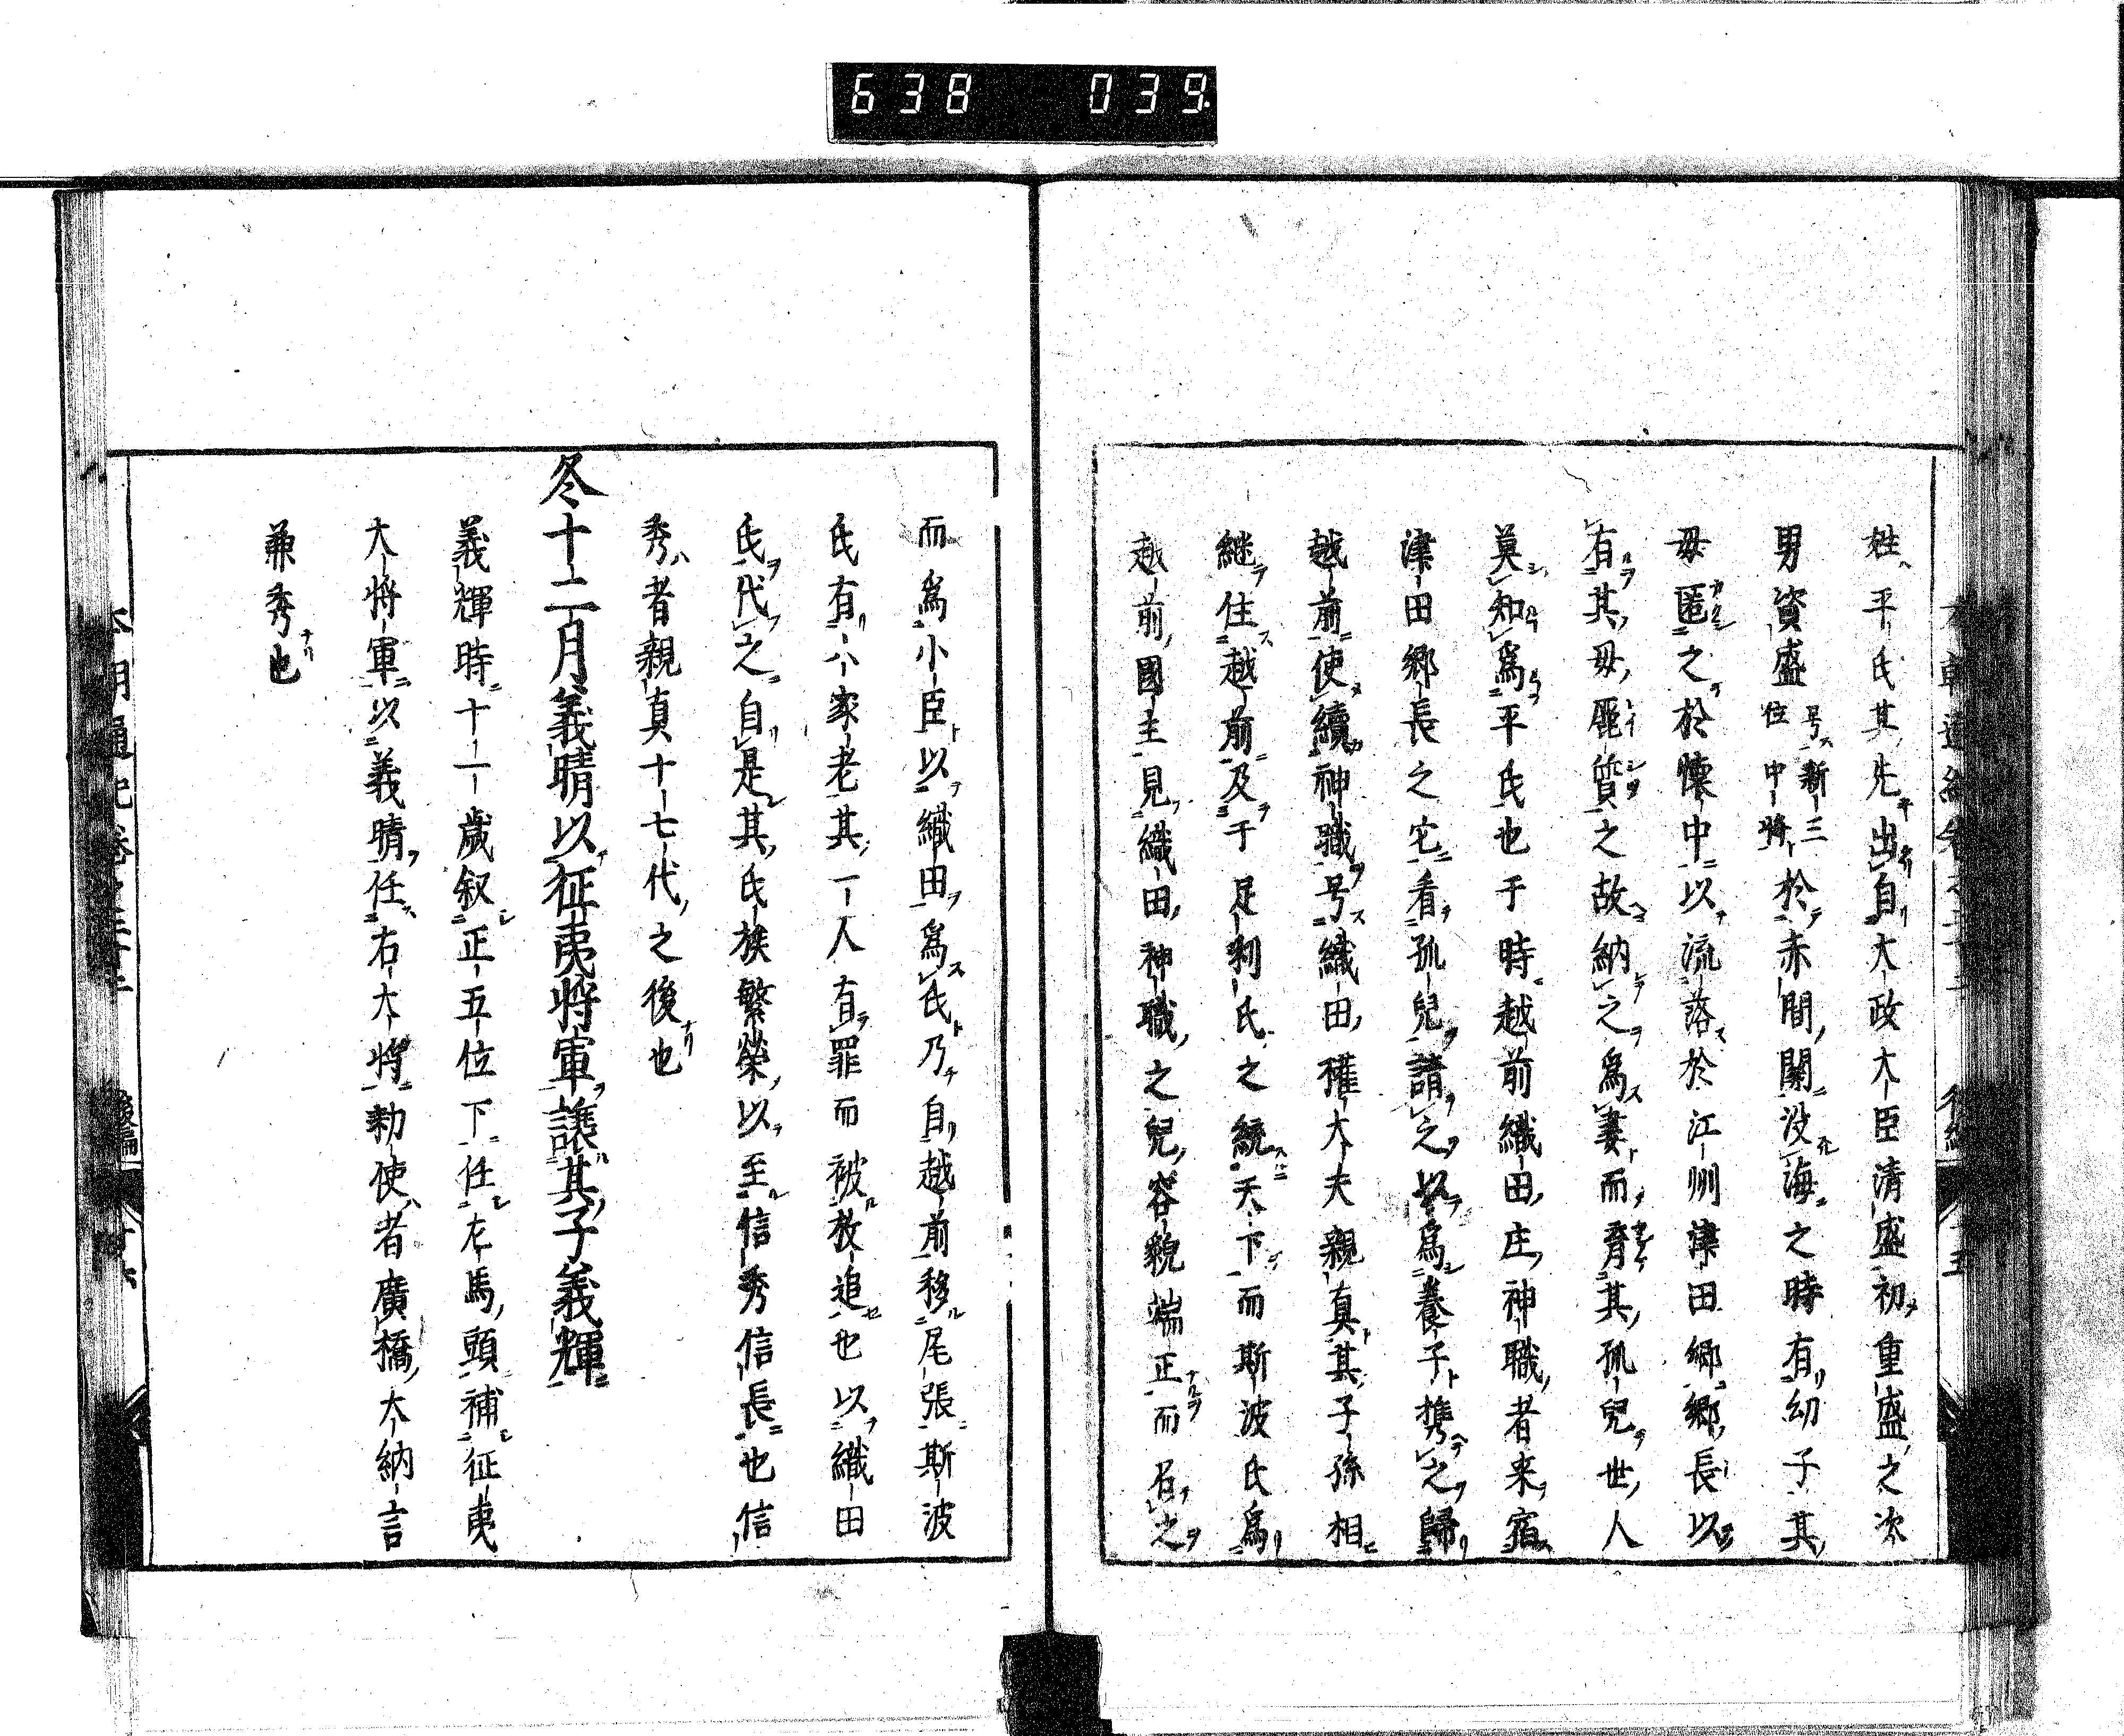 638 039
姓平氏其先出自大政大臣清盛初重盛之次
男資盛号新三位中将於赤間關没海之時有幼子其
母匿之於懐中以流落於江州津田郷郷長以
有其母麗質之故納之爲妻而育其孤兒世人
莫知爲平氏也于時越前織田庄神職者来宿
津田郷長之宅看孤兒請之以爲養子携之歸
越前使續神職号織田權大夫親真其子孫相
継住越前及于足利氏之統天下而斯波氏爲
越前國主見織田神職之兒容貌端正而召之
而爲小臣以織田爲氏乃自越前移尾張斯波
氏有八家老其一人有罪而被放追也以織田
氏代之自是其氏族繁榮以至信秀信長也信
秀者親真十七代之後也
冬十二月義晴以征夷將軍讓其子義輝
義輝時十一歳叙正五位下任左馬頭補征夷
大將軍以義晴任右大將勅使者廣橋大納言
兼秀也